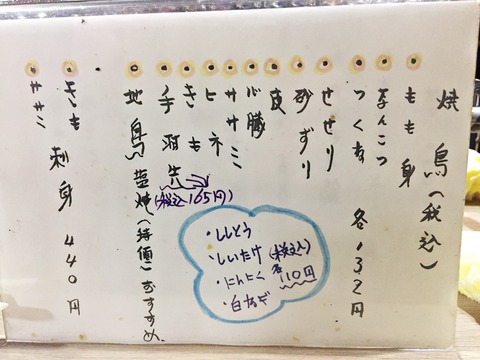 焼鳥(税込)
もも身
なんこつ
つくね 各132円
せせり
砂ずり
皮
心臓
ササミ
ヒネ
きも
手羽先(税込165円)
・ししとう
・しいたけ
・にんにく
・白ねぎ
(税込)各110円
地鳥塩焼(特価)おすすめ
きも 刺身 440円
ササミ